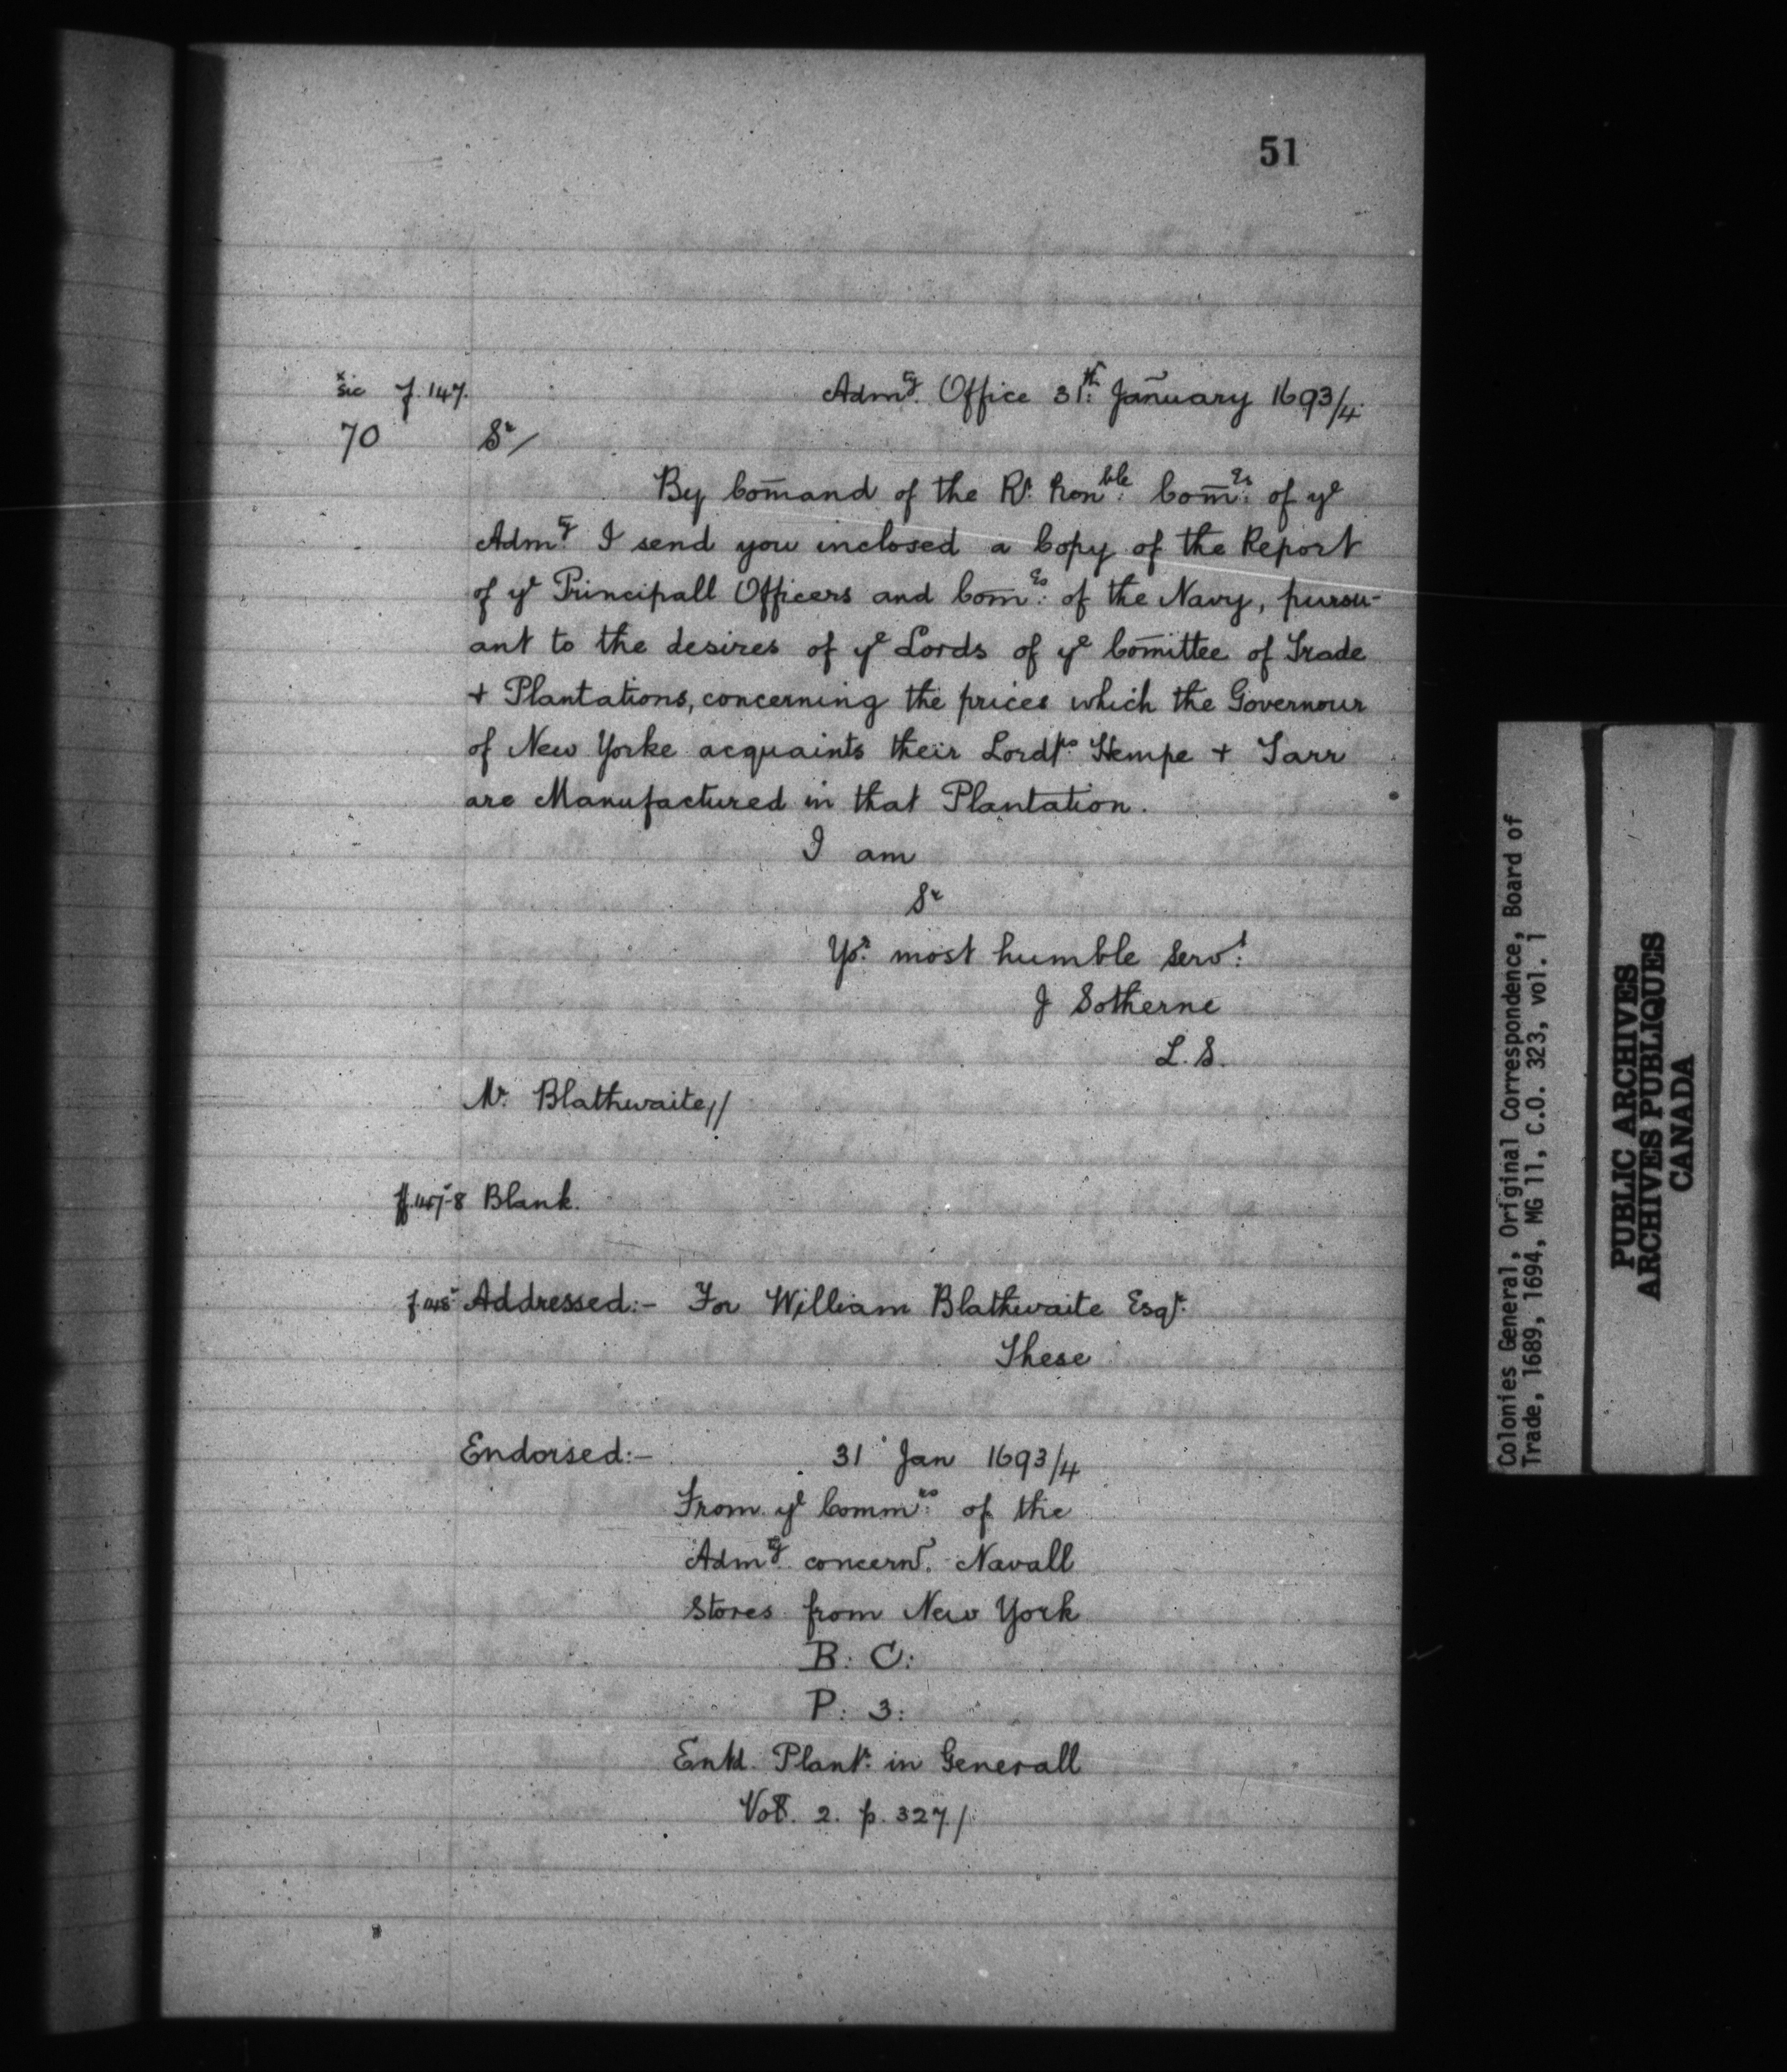 51
x sic f. 147.
Admty. Office 31th. January 1693/4.
70
Sr/
By Com̄and of the Rt. Honble. Com̄rs. of ye
Admty. I send you inclosed a Copy of the Report
of ye Principall Officers and Com̄rs. of the Navy, pursu-
ant to the desires of ye Lords of ye Com̄ittee of Trade
+ Plantations, concerning the prices which the Governour
of New Yorke acquaints their Lordps. Hempe + Tarr
are Manufactured in that Plantation.
I am
Sr
Yor. most humble Servt.
J Sotherne
L.S.
Mr. Blathwaite//
ff. 147-8 Blank.
f. 148v Addressed:- For William Blathwaite Esqr.
These
Endorsed:- 31 Jan 1693/4
From ye Commrs. of the
Admty. concernd. Navall
Stores from New York
B: C:
P: 3:
Entd. Plantn. in Generall
Vol. 2. p. 327/.
Colonies General, Original Correspondence, Board of
Trade, 1689, 1694, MG 11, C.O. 323, vol. 1
PUBLIC ARCHIVES
ARCHIVES PUBLIQUES
CANADA